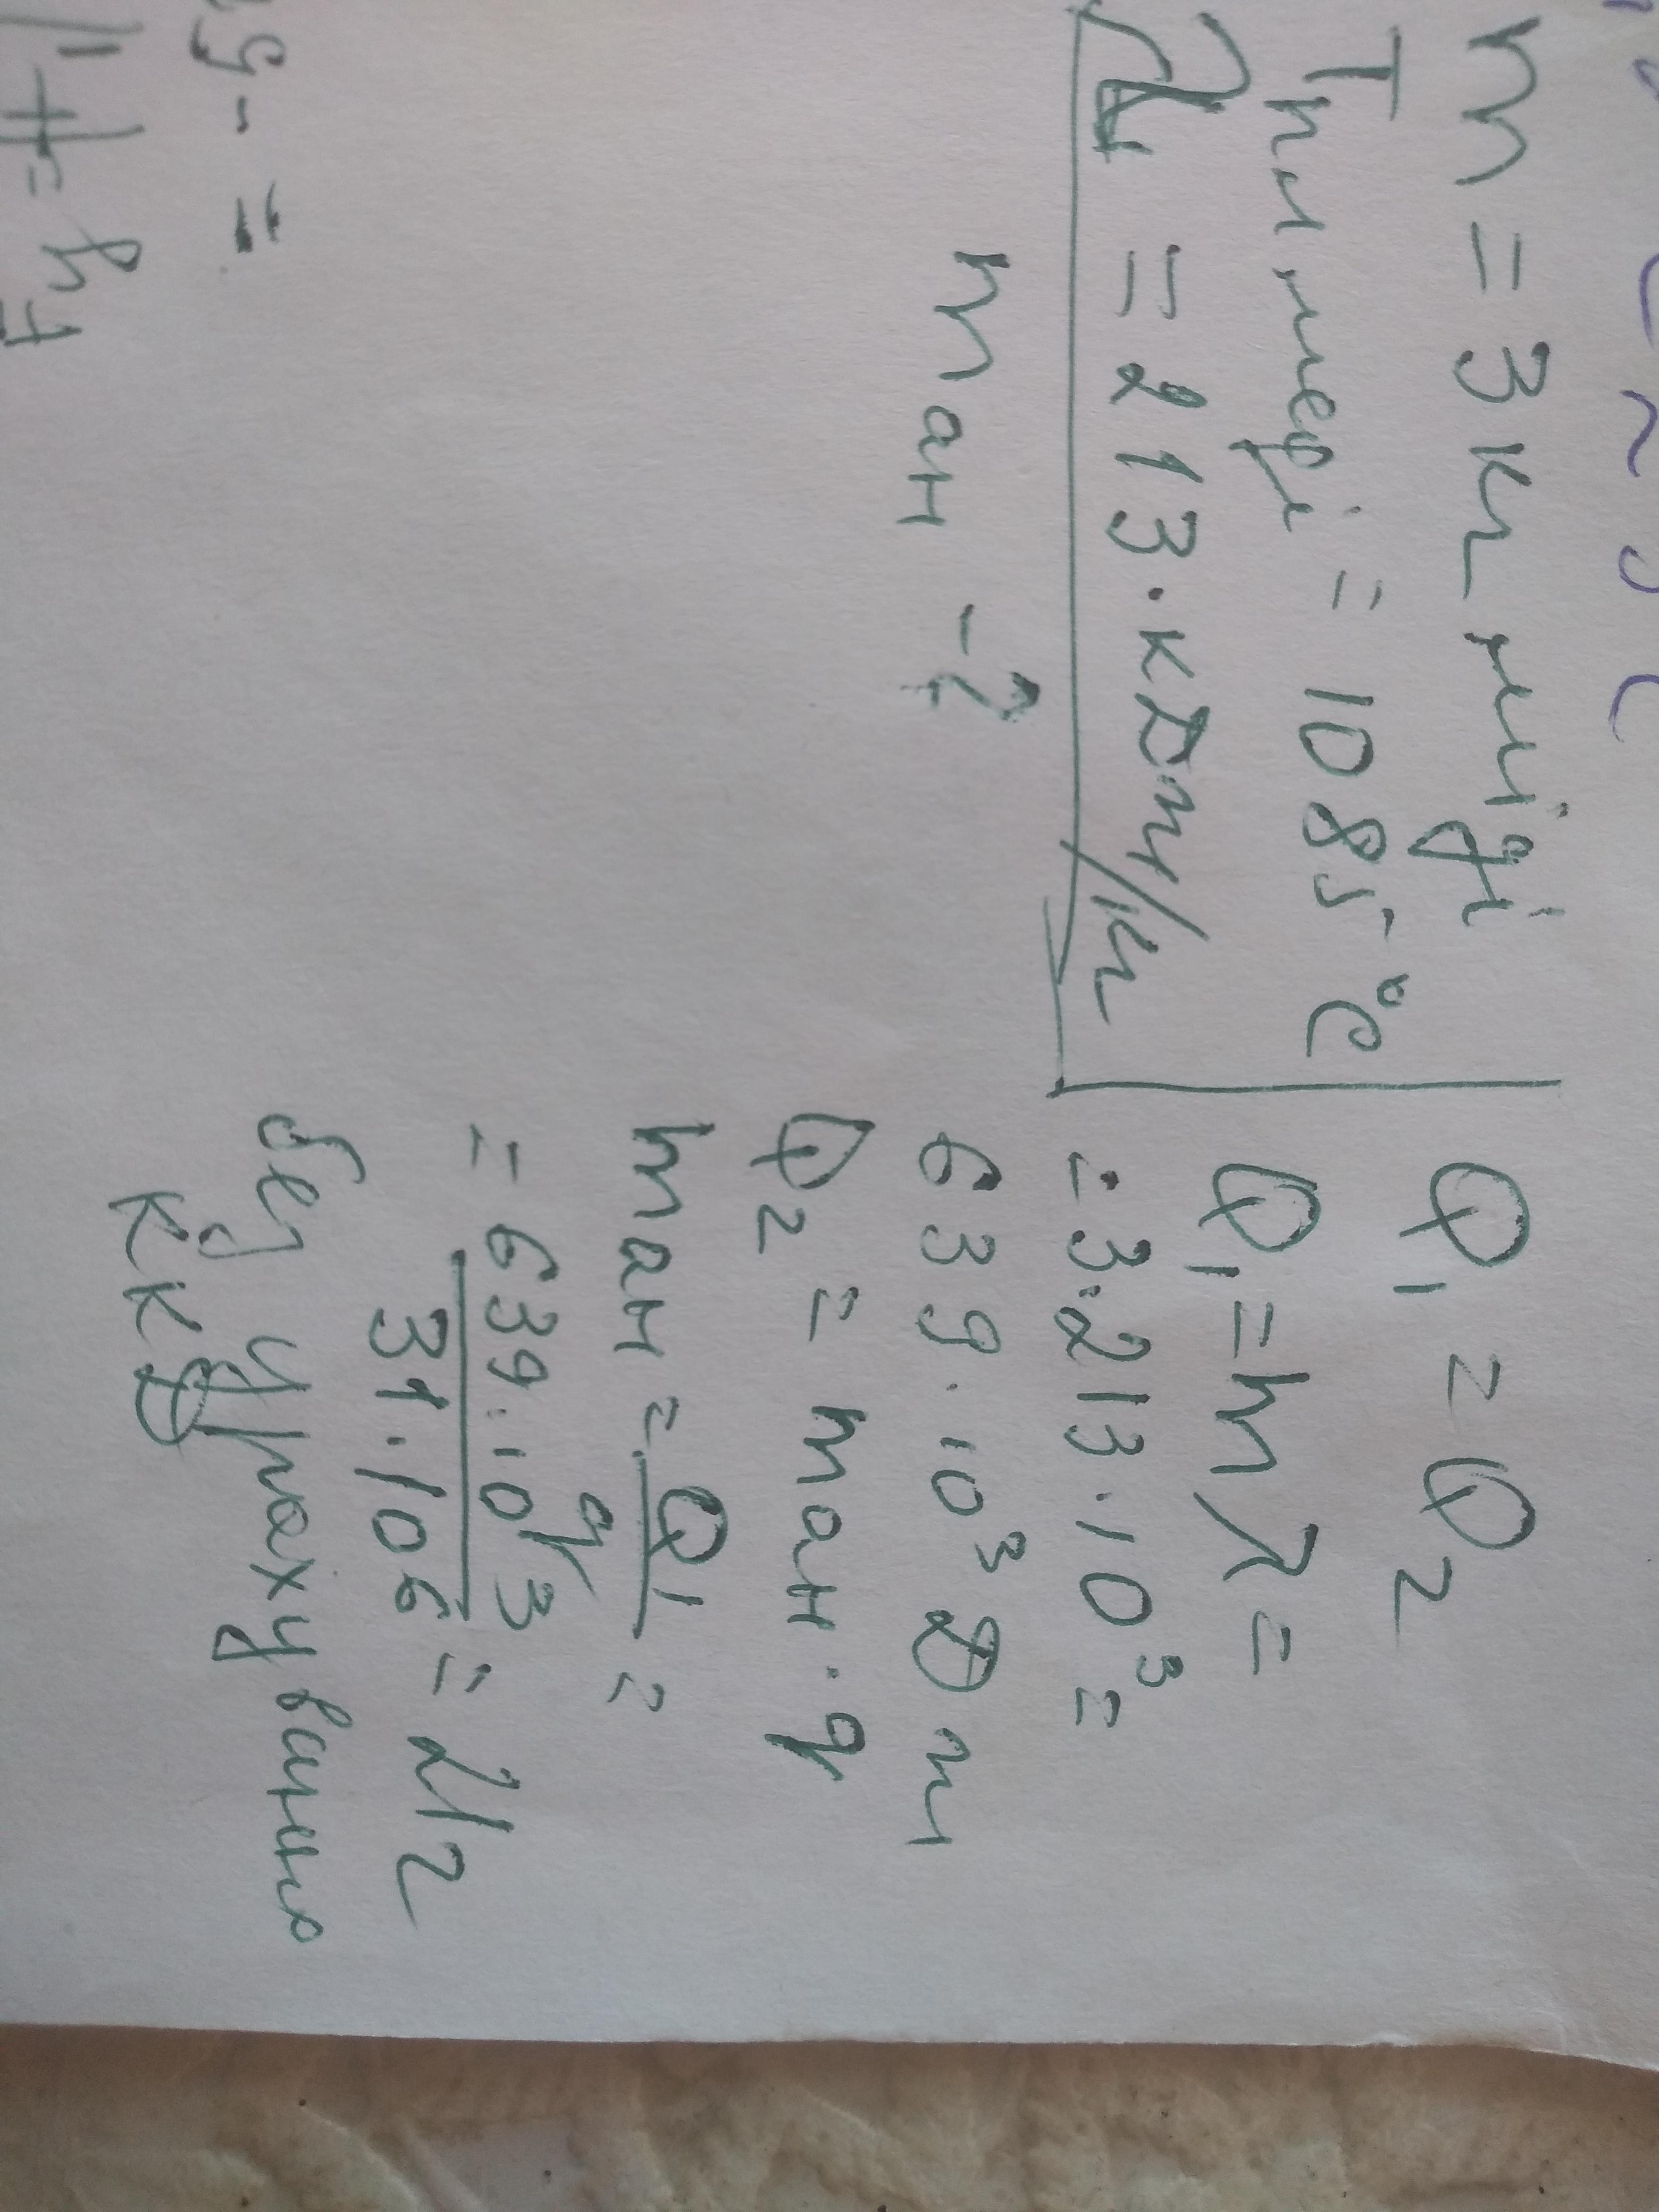 m = 3 кг міді
Tпл міді = 1085 °C
λ = 213 · кДж/кг
mан - ?
Q1 = Q2
Q1 = mλ =
= 3 · 213 · 10³ =
639 · 10³ Дж
Q2 = mан · q
mан = Q1/q =
= 639 · 10³ / 31 · 10⁶ = 21 г
без урахуванню
ККД